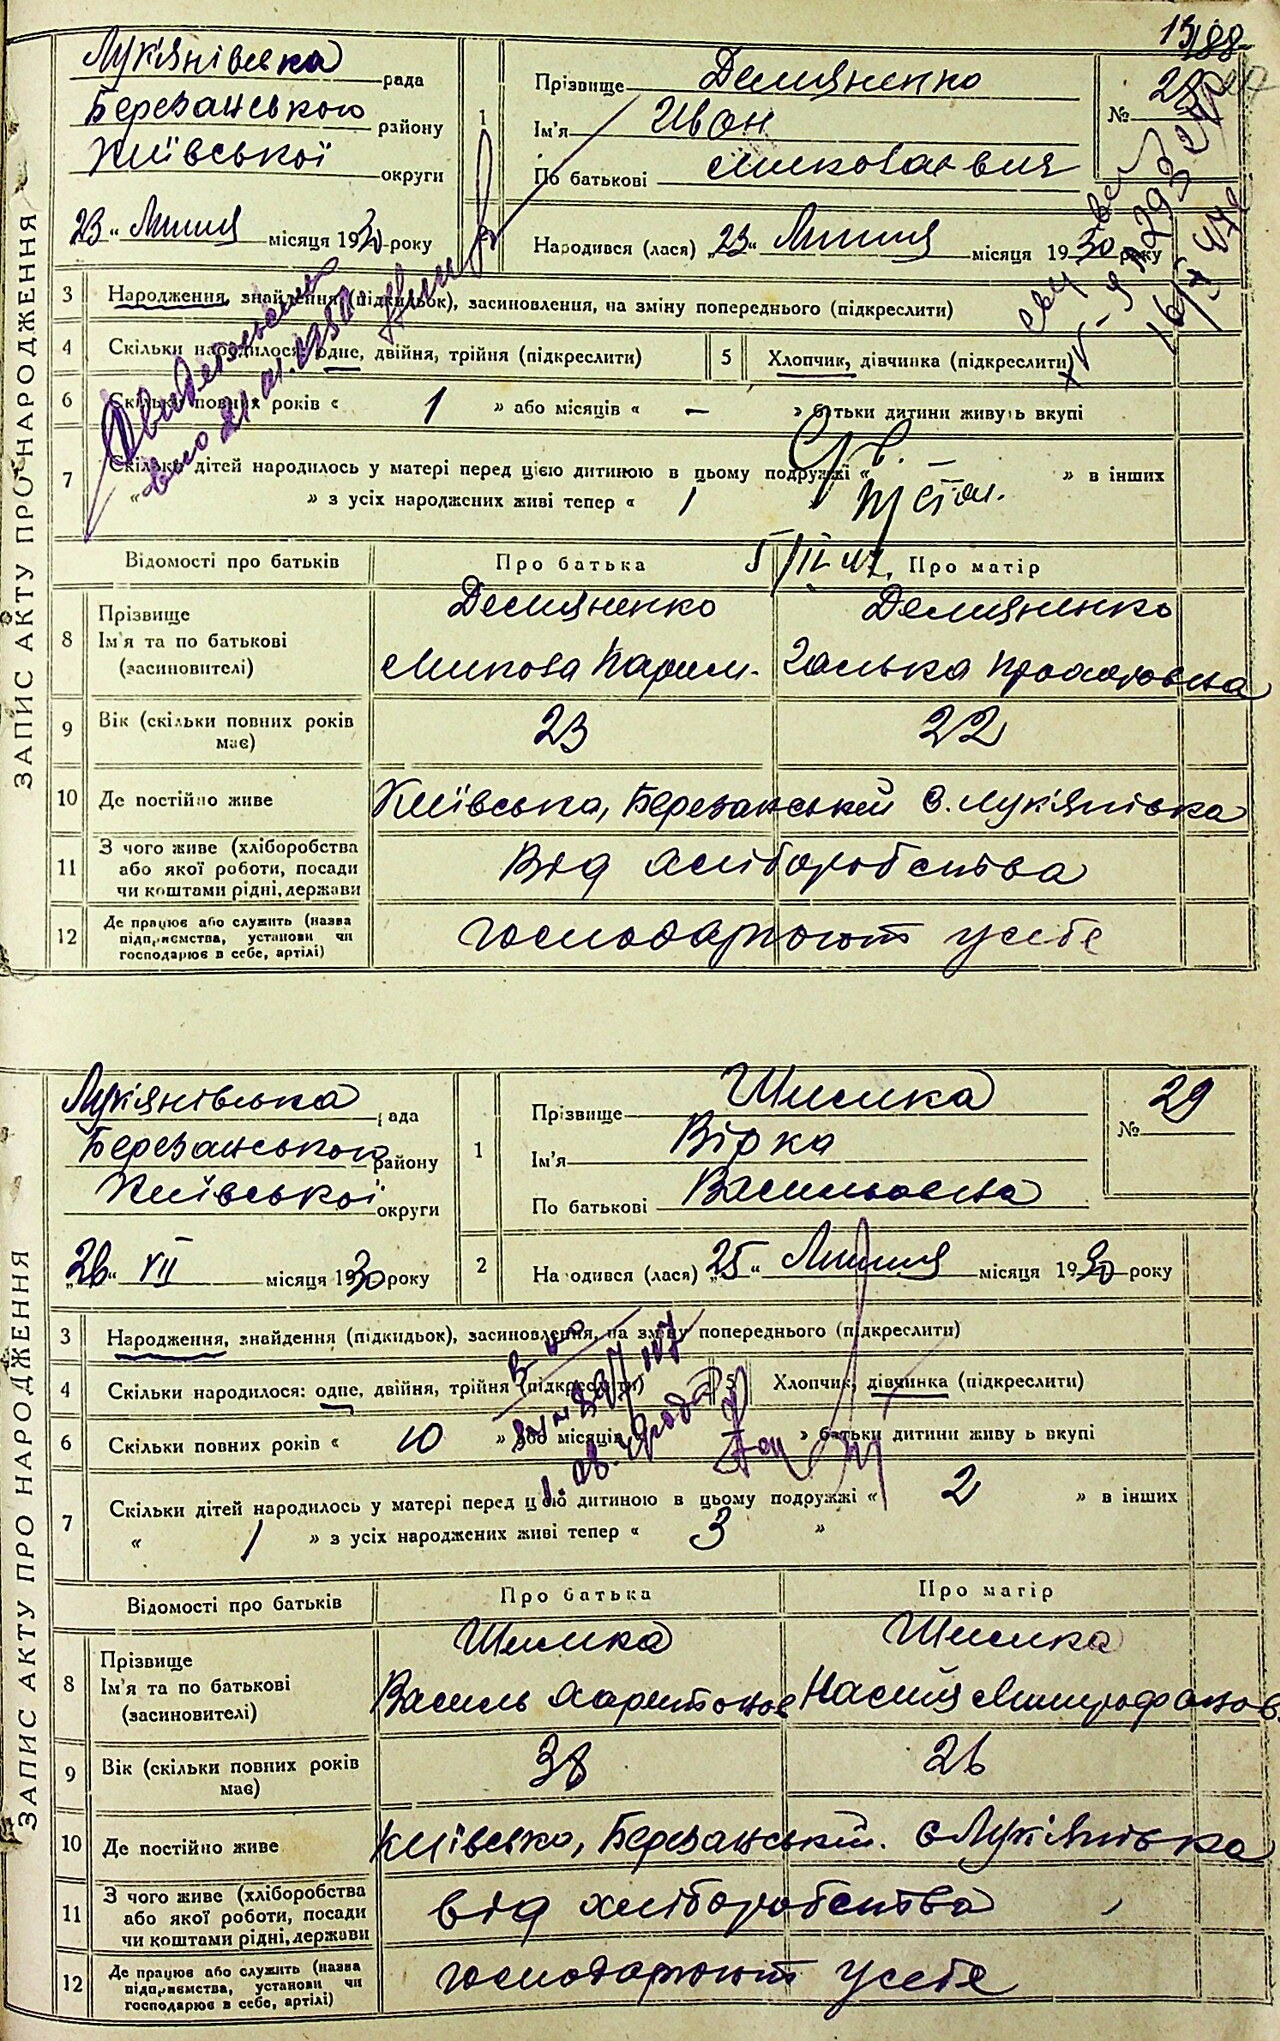 13 188
ЗАПИС АКТУ ПРО НАРОДЖЕННЯ
Лукʼянівська рада
Березанського району
Київської округи
23 " Липня місяця 1930 року
1
Прізвище Демяненко
Імʼя Иван
По батькові Миколаевич
№ 28
Народився (лася) 23 " Липня місяця 1930 року
3 Народження, знайдення (підкидьок), засиновлення, на зміну попереднього (підкреслити)
4 Скільки народилося: одне, двійня, трійня (підкреслити)
5 Хлопчик, дівчинка (підкреслити)
6 Скільки повних років « 1 » або місяців « – » батьки дитини живуть вкупі
7 Скільки дітей народилось у матері перед цією дитиною в цьому подружжі « – » в інших
« » з усіх народжених живі тепер « 1
5/IV 47.
Відомості про батьків
Про батька
Про матір
8 Прізвище
Імʼя та по батькові
(засиновителі)
Демяненко
Микола Парам.
Демяненко
Галька
9 Вік (скільки повних років має)
23
22
10 Де постійно живе
Київська, Березанський с. Лукʼянівка
11 З чого живе (хліборобства або якої роботи, посади чи коштами рідні, держави
Від хліборобства
12 Де працює або служить (назва підприємства, установи чи господарює в себе, артілі)
господарюют усебе
ЗАПИС АКТУ ПРО НАРОДЖЕННЯ
Лукʼянівська рада
Березанського району
Київської округи
„26" VII місяця 1930 року
1
Прізвище Шишка
Імʼя Вірка
По батькові Васильовна
№ 29
2 Народився (лася) „25" Липня місяця 1930 року
3 Народження, знайдення (підкидьок), засиновлення, на зміну попереднього (підкреслити)
4 Скільки народилося: одне, двійня, трійня (підкреслити)
5 Хлопчик, дівчинка (підкреслити)
6 Скільки повних років « 10 » або місяців « » батьки дитини живуть вкупі
7 Скільки дітей народилось у матері перед цією дитиною в цьому подружжі « 2 » в інших
« 1 » з усіх народжених живі тепер « 3 »
Відомості про батьків
Про батька
Про матір
8 Прізвище
Імʼя та по батькові
(засиновителі)
Шишка
Василь Харитонов
Шишка
Настя Митрофанов.
9 Вік (скільки повних років має)
38
26
10 Де постійно живе
Київська, Березанський. с Лукʼянівка
11 З чого живе (хліборобства або якої роботи, посади чи коштами рідні, держави
від хліборобства
12 Де працює або служить (назва підприємства, установи чи господарює в себе, артілі)
господарюют усебе